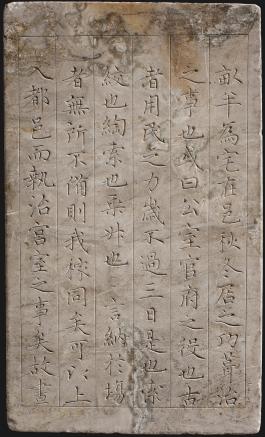 畝半為宅在邑秋冬居之功葺治
之事也或曰公室官府之役也古
者用民之力歲不過三日是也索
絞也綯索也乗升也 言納於場
者無所不備則我稼同矣可以上
入都邑而執治宮室之事矣故晝